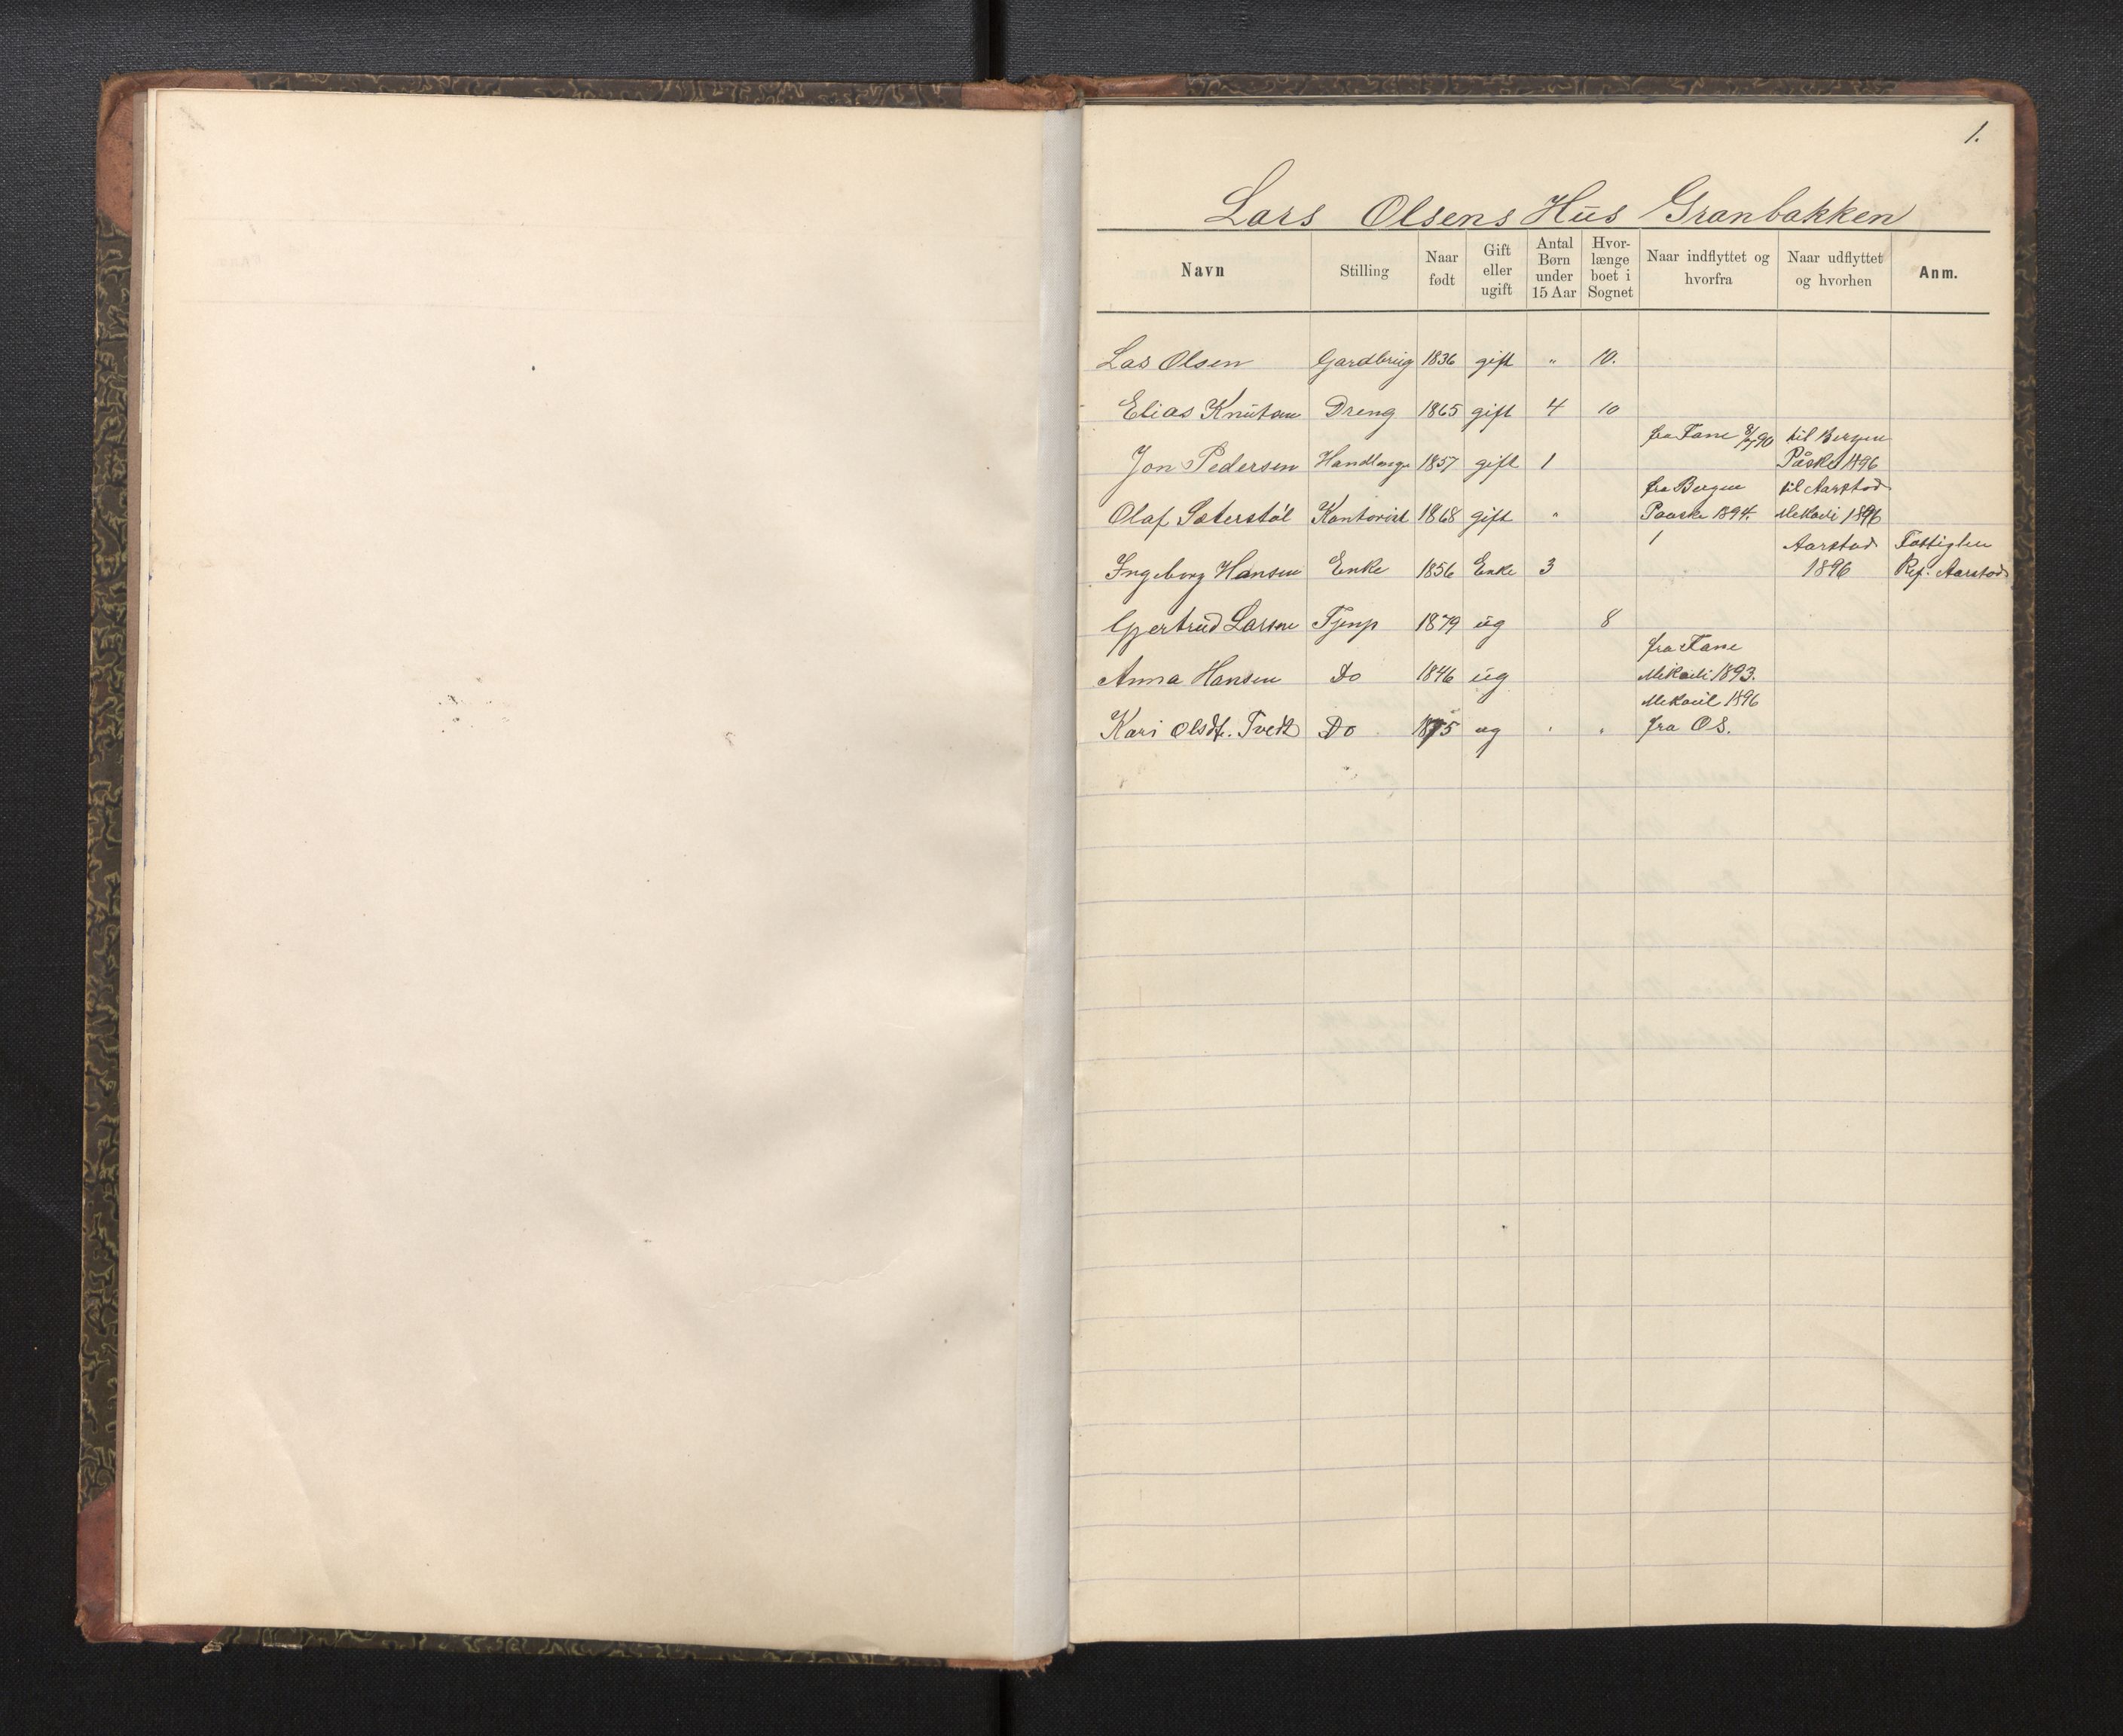 1.
Lars Olsens Hus Granbakken
Navn Stilling Naar født Gift eller ugift Antal Børn under 15 Aar Hvorlænge boet i Sognet Naar indflyttet og hvorfra Naar udflyttet og hvorhen Anm.
Las Olsen Gardbrüg 1836 gift „ 10.
Elias Knütsen Dreng 1865 gift 4 10
fra Fane 90 til Bergen
Jon Pedersen 1857 gift 1 Påske 1896
fra Bergen til Aarstad
Olaf Sæterstøl Kontorist 1868 gift „ Paaske 1894. Mekaeli 1896
1 Aarstad
Ingeborg Hansen Enke 1856 Enke 3 1896 Aarstad
Gjertrüd Larsen Tjenp 1879 üg 8
fra Fane
Anna Hansen Do 1846 üg Mikaeli 1893.
Mekaeil 1896
Kari Olsdt. Tvedt Do 1875 ug fra OS.